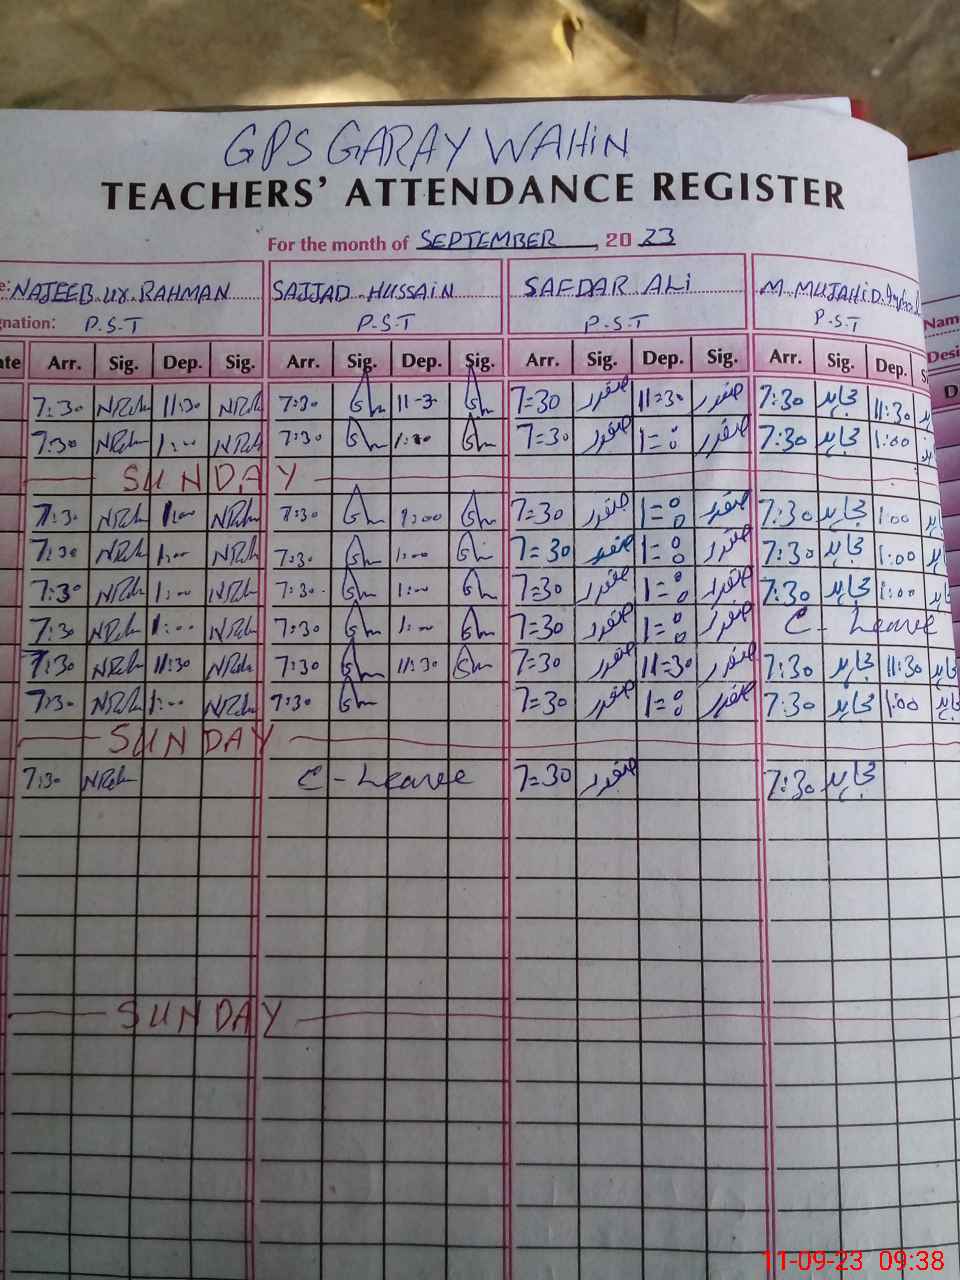 GPS GARAY WAHIN
TEACHERS' ATTENDANCE REGISTER
For the month of SEPTEMBER, 20 23
e: NAJEEB ur RAHMAN SAJJAD HUSSAIN SAFDAR ALi M MUJAHiD
gnation: P.S.T P.S.T P.S.T P.S.T Nam
Desi
ate Arr. Sig. Dep. Sig. Arr. Sig. Dep. Sig. Arr. Sig. Dep. Sig. Arr. Sig. Dep. S D
7:30 11:30 7:30 11-3 7=30 صفدر 11=30 صفدر 7:30 مجاہد 11:30
7:30 1:00 7:30 1:00 7=30 صفدر 1=00 صفدر 7:30 مجاہد 1:00
SUNDAY
7:30 1:00 7:30 1:00 7=30 صفدر 1=00 صفدر 7:30 مجاہد 1:00
7:30 1:00 7:30 1:00 7=30 صفدر 1=00 صفدر 7:30 مجاہد 1:00
7:30 1:00 7:30 1:00 7=30 صفدر 1=00 صفدر 7:30 مجاہد 1:00
7:30 1:00 7:30 1:00 7=30 صفدر 1=00 صفدر C - Leave
7:30 11:30 7:30 11:30 7=30 صفدر 11=30 صفدر 7:30 مجاہد 11:30
7:30 1:00 7:30 7=30 صفدر 1=00 صفدر 7:30 مجاہد 1:00
SUNDAY
7:30 C - Leave 7=30 صفدر 7:30 مجاہد
SUNDAY
11-09-23 09:38